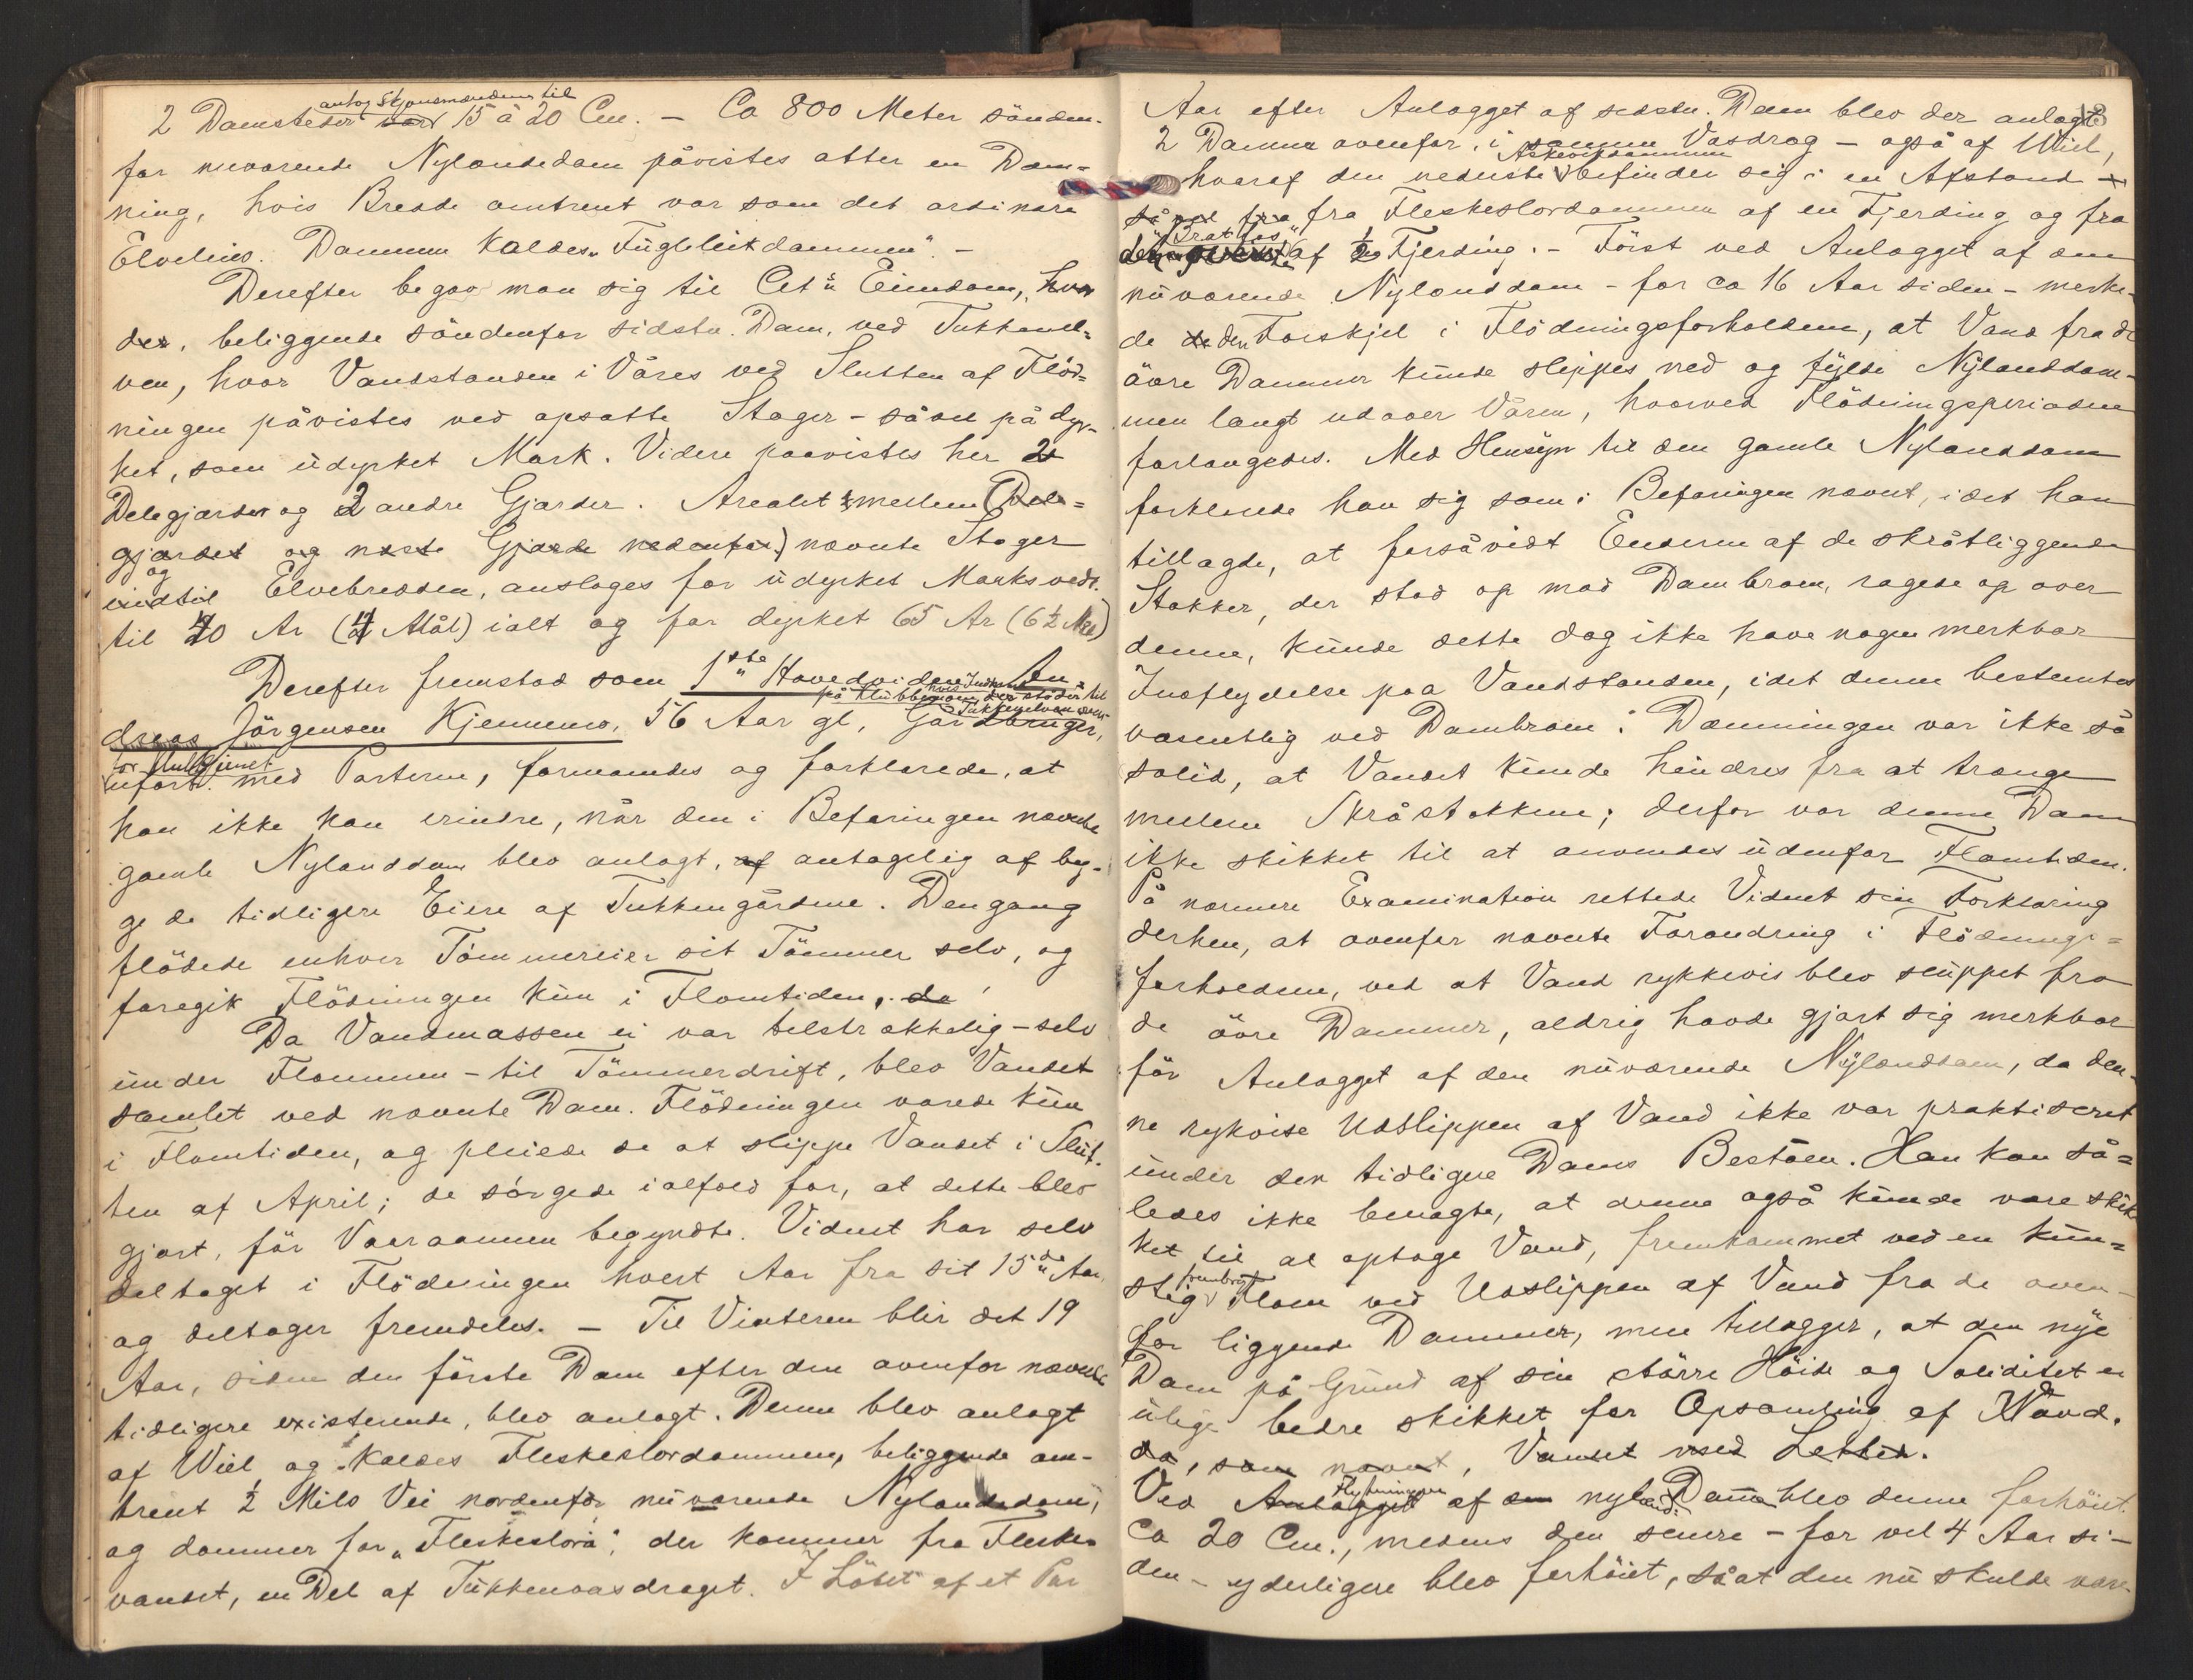 antog Skjønsmændene til
2 Damsteder var 15 à 20 Cm. – Ca 800 Meter sönden-
for nuværende Nylandsdam påvistes atter en Dæm-
ning, hvis Bredde omtrent var som det ordinære
Elveleies. Dammen kaldes „Fugleleikdammen". –
Derefter begav man sig til Eiendom, hvor
der, beliggende söndenfor sidstn. Dam, ved Tukkenel-
ven, hvor Vandstanden i Våres ved Slutten af Flöd-
ningen påvistes ved opsatte Stager – såvel på dyr-
ket, som udyrket Mark. Videre paavistes her 2
Delegjærder og 2 andre Gjærder. Arealet mellem (Dele-
gjærdet og næste Gjærde nedenfor) nævnte Stager
og
indtil Elvebredden, ansloges for udyrket Marks vedk.
til 40 Ar (4 Mål) ialt og for dyrket 65 Ar (6½ Mål)
Derefter fremstod som 1ste Hovedvidne An-
på Klubben, hvis Indmark der støder til
Tukkenelven oven-
dreas Jörgensen Kjennerud, 56 Aar gl, Gårdbruger,
for
ubesl. med Parterne, formanedes og forklarede, at
han ikke kan erindre, når den i Befaringen nævnte
gamle Nylanddam blev anlagt, af antagelig af byg-
ge de tidligere Eiere af Tukkengårdene. Dengang
flödede enhver Tömmereier sit Tömmer selv, og
foregik Flödningen kun i Flomtiden, da
Da Vandmassen ei var tilstrækkelig – selv
under Flommen – til Tömmerdrift, blev Vandet
samlet ved nævnte Dam. Flödningen varede kun
i Flomtiden, og pleiede de at slippe Vandet i Slut-
ten af April; de sörgede ialfald for, at dette blev
gjort, för Vaaraannen begyndte. Vidnet har selv
deltaget i Flödningen hvert Aar fra sit 15de Aar,
og deltager fremdeles. – Til Vinteren blir det 19
Aar, siden den förste Dam efter den ovenfor nævnte
tidligere existerende, blev anlagt. Denne blev anlagt
af Wiel og kaldes Fleskeslordammen, beliggende om-
trent ½ Mils Vei nordenfor nuværende Nylandsdam,
og dammer for „Fleskeslora", der kommer fra Fleske-
vandet, en Del af Tukkenvasdraget. I Löbet af et Par
13
Aar efter Anlægget af sidstn. Dam blev der anlagt
2 Damme ovenfor i samme Vasdrag – også af Wiel,
hvoraf den nederste befinder sig i en Afstand
så vel fra fra Fleskeslordammen af en Fjerding og fra
„Bratfos"
den øverste af ½ Fjerding. – Först ved Anlægget af den
nuværende Nylanddam – for ca 16 Aar siden – merke-
de de den Forskjel i Flödningsforholdene, at Vand fra de
övre Dammer kunde slippes ned og fylde Nylanddam-
men langt udover Våren, hvorved Flödningsperioden
forlængedes. Med Hensyn til den gamle Nylanddam
forklarede han sig som i Befaringen nævnt, idet han
tillagde, at forsåvidt Enderne af de skråtliggende
Stokker, der stod op mod Dambroen, ragede op over
denne, kunde dette dog ikke have nogen merkbar
Indflydelse paa Vandstanden, idet denne bestemtes
væsentlig ved Dambroen. Dæmningen var ikke så
solid, at Vandet kunde hindres fra at trænge
mellem Skråstokkene; derfor var denne Dam
ikke skikket til at anvendes udenfor Flomtiden.
På nærmere Examination rettede Vidnet sin Forklaring
derhen, at ovenfor nævnte Forandring i Flödnings-
forholdene, ved at Vand rykkevis blev sluppet fra
de övre Dammer, aldrig havde gjort sig merkbar
för Anlægget af den nuværende Nylanddam, da den-
ne rykvise Udslippen af Vand ikke var praktiseret
under den tidligere Dams Beståen. Han kan så-
ledes ikke benægte, at denne også kunde være skik-
ket til at optage Vand, fremkommet ved en kun-
frembragt
stig Flom ved Udslippen af Vand fra de oven-
for liggende Dammer, men tillægger, at den nye
Dam på Grund af sin större Höide og Soliditet er
ulige bedre skikket for Opsamling af Vand.
da, som nævnt, Vandet med
Ved Anlægget af den nyland. Dam blev denne forhöiet
ca 20 Cm., medens den senere – for vel 4 Aar si-
den – yderligere blev forhöiet, så at den nu skulde være